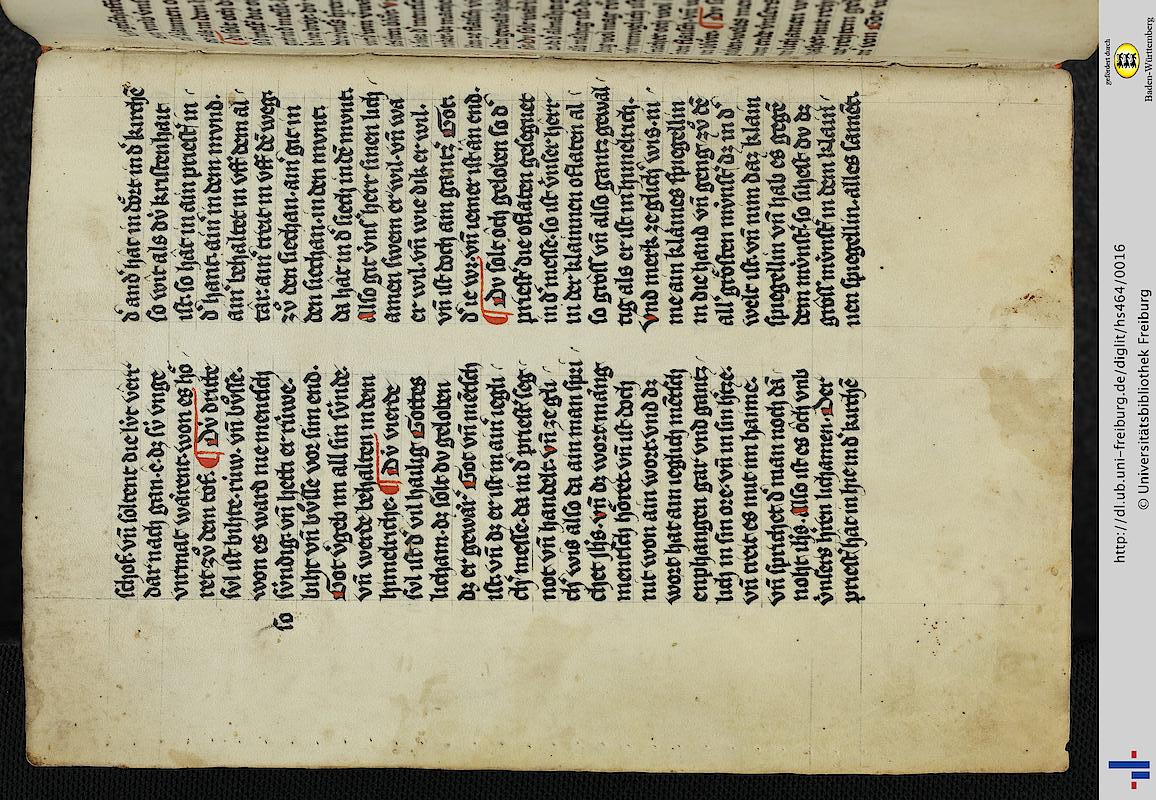 schof. vn̄ soltent die lvt verr
dar nach gan. e. dz si vnge
virmat wārent. won es hö
ret zv̊ dem tof. Dv dritte
svl ist bihte. riuw. vn̄ bv̊sse.
won es ward nie mensch
so sv́ndig. vn̄ hetti er rúwe.
biht vn̄ bv̊sse vor sim end.
Got v'geb im all sin sv́nde.
vn̄ werde behalten in dem
himelriche. Dv́ vierde
svl ist d' vil hailig Gottes
licham. da solt dv geloben
dz er gewar' Got vn̄ mēsch
ist. vn̄ dz er ist in ain' iegli
ch' messe. da in d' priest' seg
not vn̄ handelt. vn̄ ze gli
ch' wis also da ain man spri
chet ihs. vn̄ dz wort mäng
mensch höret. vn̄ ist doch
nit won ain wort. vnd dz
wort hat ain ieglich mēsch
enphangen gar vnd gantz
lich in sin ore. vn̄ in sin h'ze.
vn̄ treit es mit im haime.
vn̄ sprichet d' man noch dā
noht ihs. Also ist es och vmb
vnsers h'ren lichamen. Der
priest' hat in hie in d' kirchē
d' and' hat in dört in d' kirchē
so wit als dv́ kristenhait
ist. so hat in ain priest' in
d' hant. ain' in dem mvnd.
ain' behaltet in vff dem al
tār. ain' treit in vff dē weg.
zv̊ den siechan. ain' git in
den siechan. in den mvnt.
da hat in d' siech in dē mvnt.
Also git vns' herr sinen lich
amen swem er wil. vn̄ wa
er wil. vn̄ wie dik er wil.
vn̄ ist doch ain gantz' Got.
d' ie wz. vn̄ iemer ist ān end.
Dv solt och geloben so d'
priest' die oflaten gesegnet
in d' messe. so ist vnser herr
in der klainen oflaten al
so gross vn̄ also gantz gewal
tig als er ist in himelrich.
vnd merk ze glich' wis. ni
me ain klaines spiegellin
in die hand vn̄ geng zv̊ dē
all' grösten mvnst' dz in d'
welt ist. vn̄ nim daz klain
spiegellin vn̄ hab es gegē
dem mvnst'. so sihest dv dz
gross mvnst' in dem klai
nen spiegellin. alles samēt.
http://dl.ub.uni-freiburg.de/diglit/hs464/0016
© Universitätsbibliothek Freiburg
gefördert durch
Baden-Württemberg